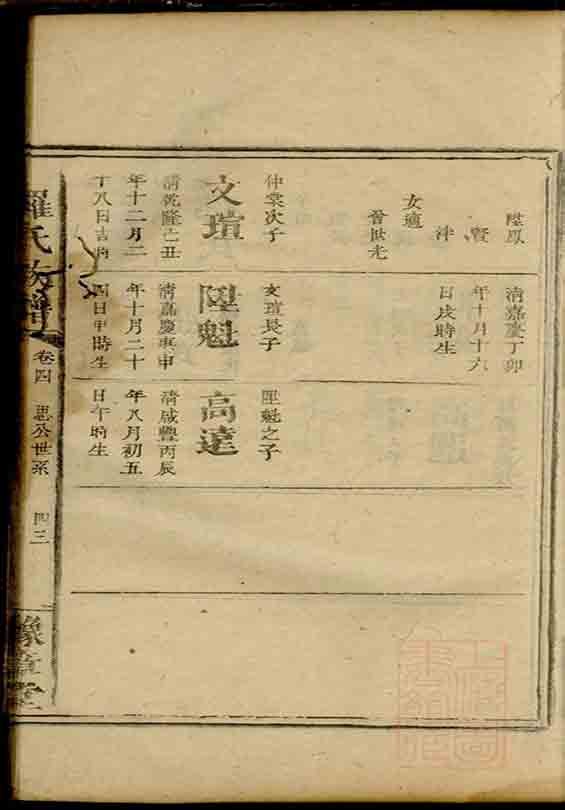 陞鳳
賢
津
女適
晉世光
仲棠次子
文瑄
清乾隆乙丑
年十二月二
十八日吉時
清嘉慶丁卯
年十月十六
日戌時生
文瑄長子
陞魁
清嘉慶庚申
年十月二十
四日申時生
陞魁之子
高達
清咸豐丙辰
年八月初五
日午時生
羅氏族譜
卷四
思公世系
四三
豫章堂